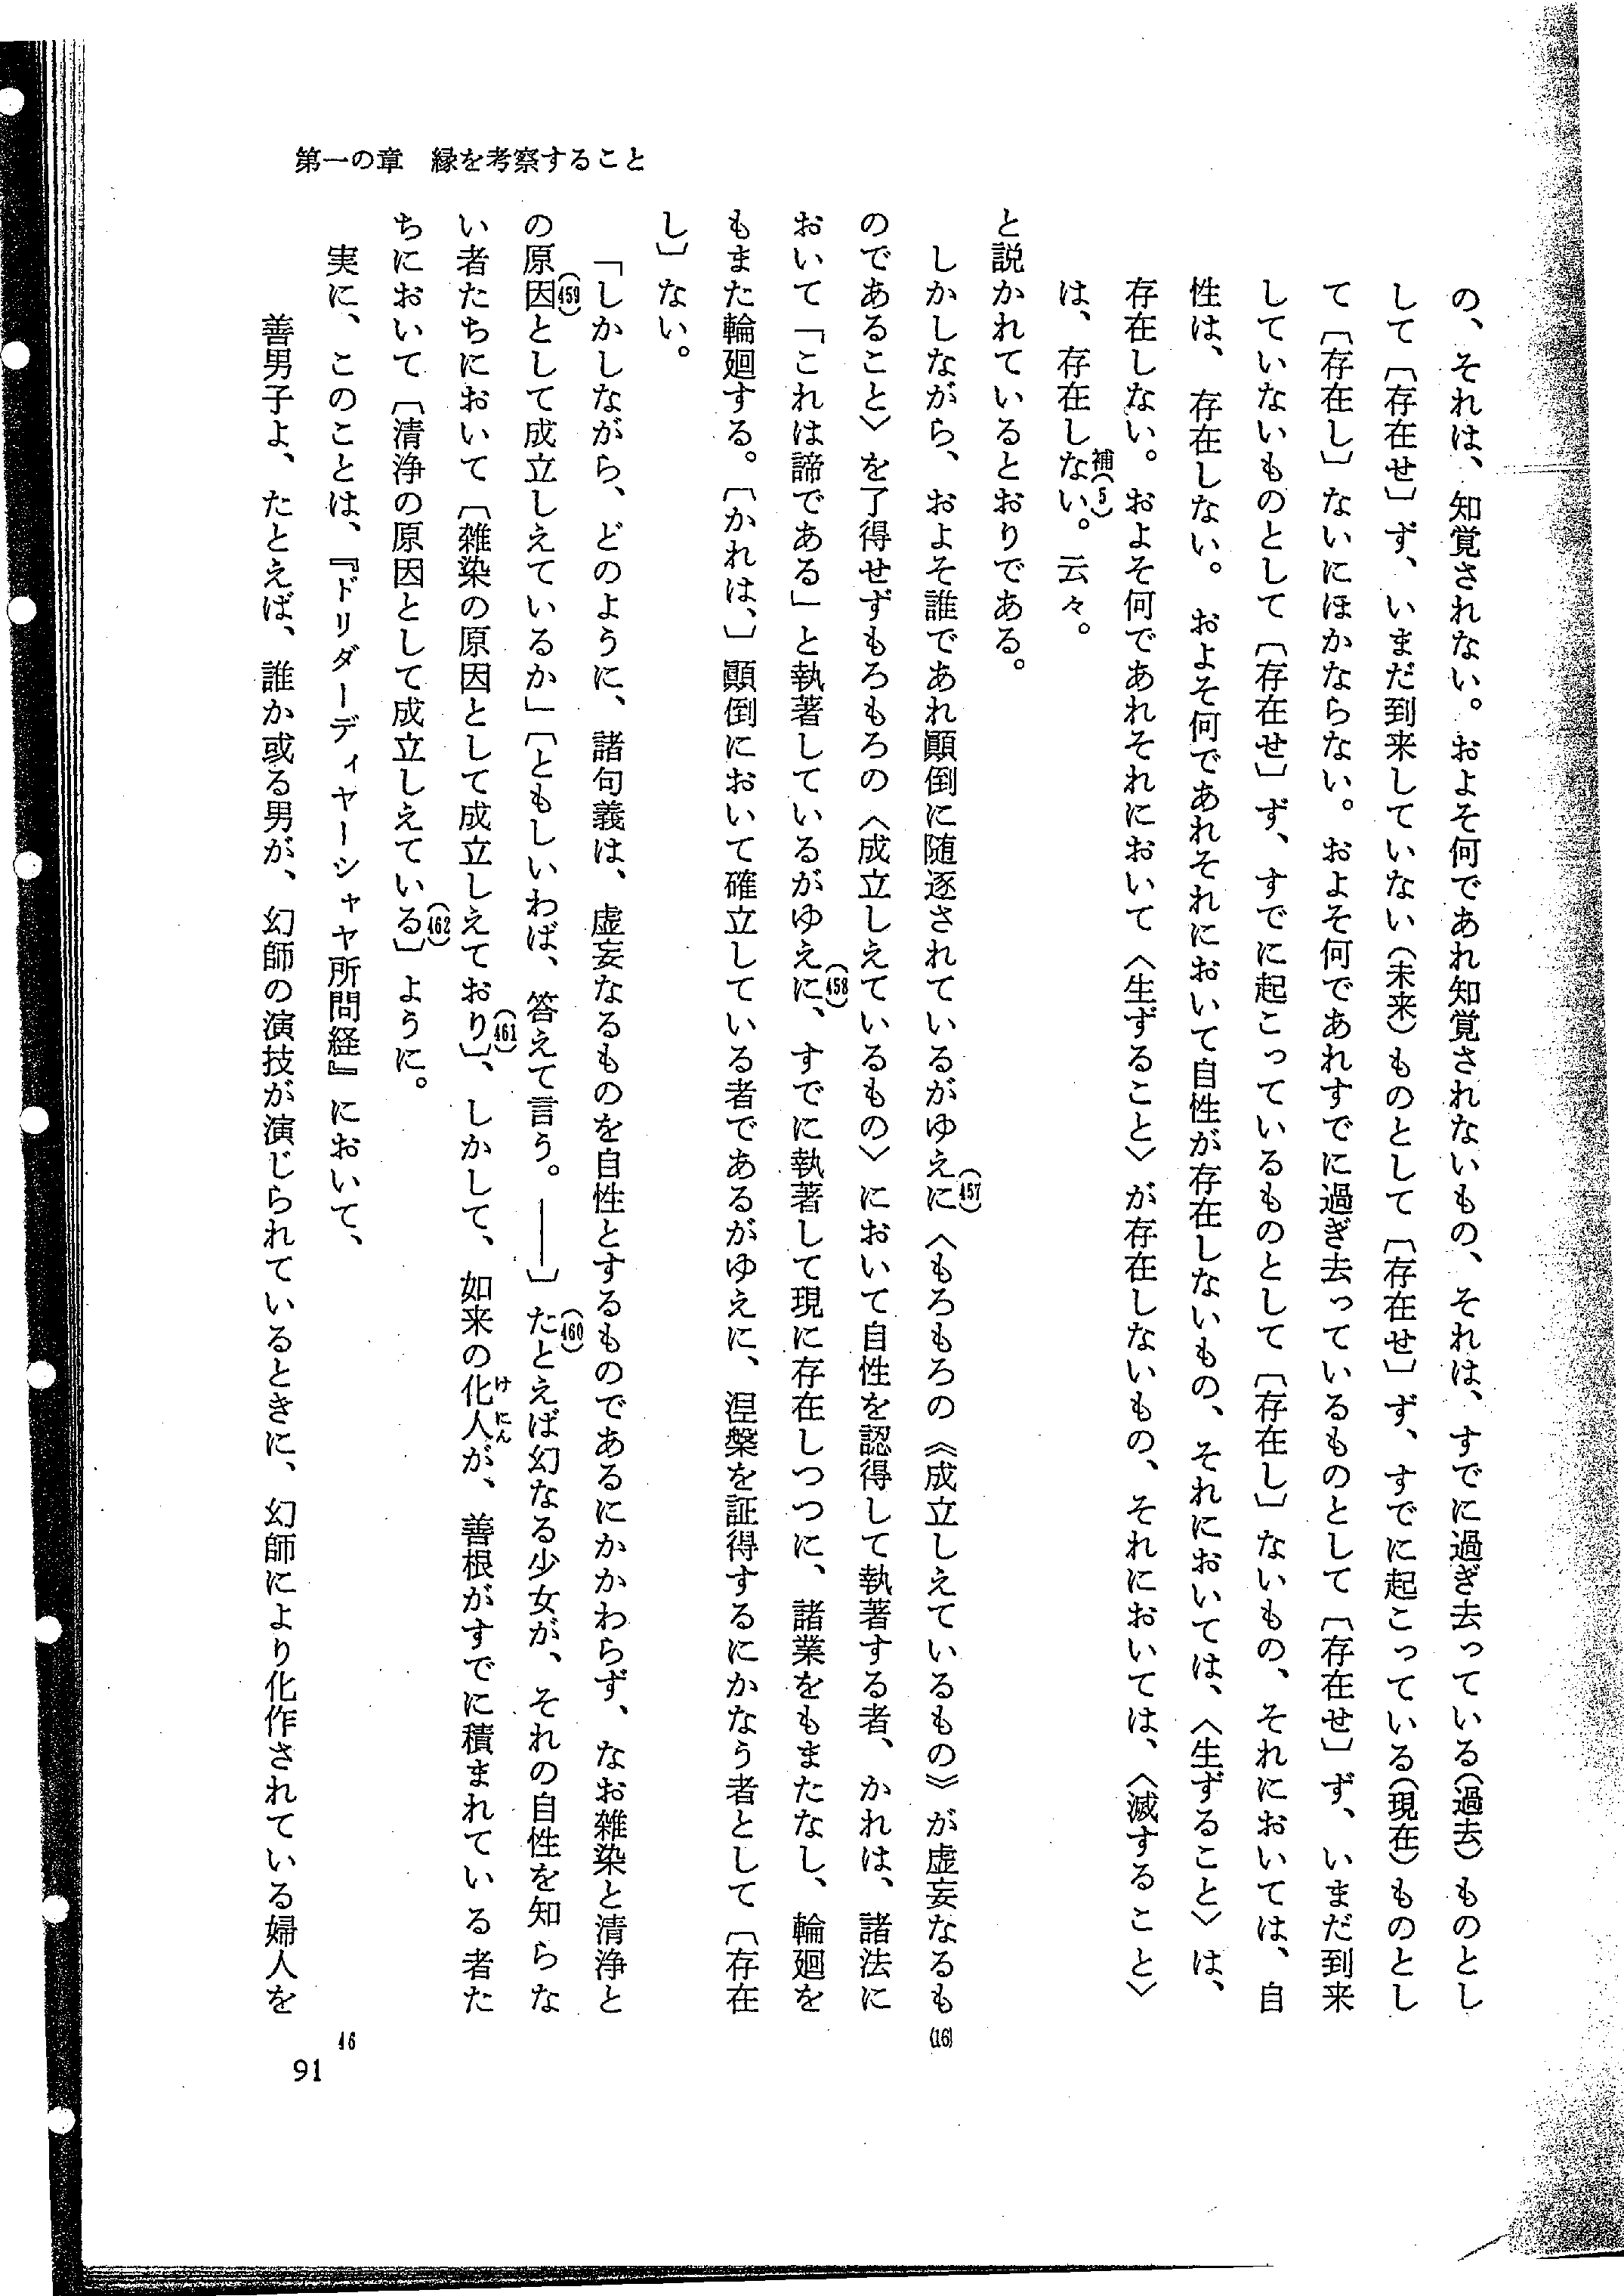 第一の章　縁を考察すること
の、それは、知覚されない。およそ何であれ知覚されないもの、それは、すでに過ぎ去っている（過去）ものとし
して〔存在せ〕ず、いまだ到来していない（未来）ものとして〔存在せ〕ず、すでに起こっている（現在）ものとし
て〔存在し〕ないにほかならない。およそ何であれすでに過ぎ去っているものとして〔存在せ〕ず、いまだ到来
していないものとして〔存在せ〕ず、すでに起こっているものとして〔存在し〕ないもの、それにおいては、自
性は、存在しない。およそ何であれそれにおいて自性が存在しないもの、それにおいては、〈生ずること〉は、
存在しない。およそ何であれそれにおいて〈生ずること〉が存在しないもの、それにおいては、〈滅すること〉
は、存在しない。補(5)云々。
と説かれているとおりである。
しかしながら、およそ誰であれ顚倒に随逐されているがゆえに(457)〈もろもろの《成立しえているもの》が虚妄なるも
のであること〉を了得せずもろもろの〈成立しえているもの〉において自性を認得して執著する者、かれは、諸法に
おいて「これは諦である」と執著しているがゆえに(458)、すでに執著して現に存在しつつに、諸業をもまたなし、輪廻を
もまた輪廻する。〔かれは、〕顚倒において確立している者であるがゆえに、涅槃を証得するにかなう者として〔存在
し〕ない。
「しかしながら、どのように、諸句義は、虚妄なるものを自性とするものであるにかかわらず、なお雑染と清浄と
の原因(459)として成立しえているか」〔ともしいわば、答えて言う。――〕たとえば(460)幻なる少女が、それの自性を知らな
い者たちにおいて〔雑染の原因として成立しえており(461)〕、しかして、如来の化人けにんが、善根がすでに積まれている者た
ちにおいて〔清浄の原因として成立しえている(462)〕ように。
実に、このことは、『ドリダーディヤーシャヤ所問経』において、
善男子よ、たとえば、誰か或る男が、幻師の演技が演じられているときに、幻師により化作されている婦人を
(16)
46
91